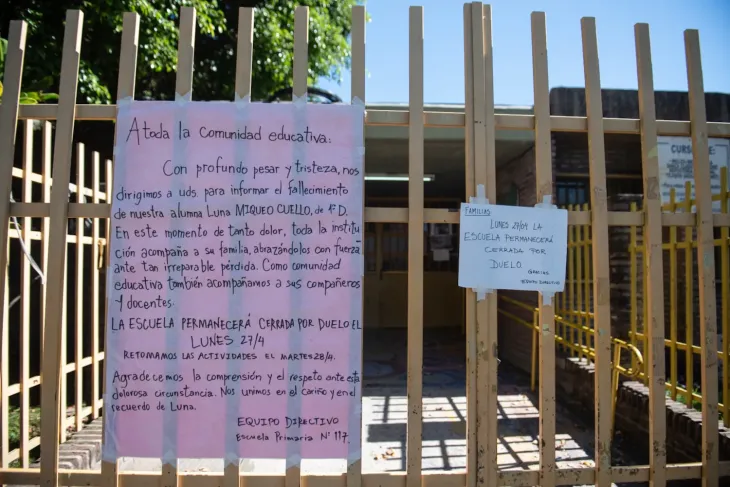 A toda la comunidad educativa:
Con profundo pesar y tristeza, nos
dirigimos a uds. para informar el fallecimiento
de nuestra alumna Luna MIQUEO CUELLO, de 1º D.
En este momento de tanto dolor, toda la institu
ción acompaña a su familia, abrazándolos con fuerza
ante tan irreparable pérdida. Como comunidad
educativa también acompañamos a sus compañeros
y docentes.
LA ESCUELA PERMANECERÁ CERRADA POR DUELO EL
LUNES 27/4
RETOMAMOS LAS ACTIVIDADES EL MARTES 28/4.
Agradecemos la comprensión y el respeto ante esta
dolorosa circunstancia. Nos unimos en el cariño y en el
recuerdo de Luna.
EQUIPO DIRECTIVO
Escuela Primaria Nº 117.
FAMILIAS
LUNES 27/04 LA
ESCUELA PERMANECERÁ
CERRADA POR
DUELO
EQUIPO DIRECTIVO